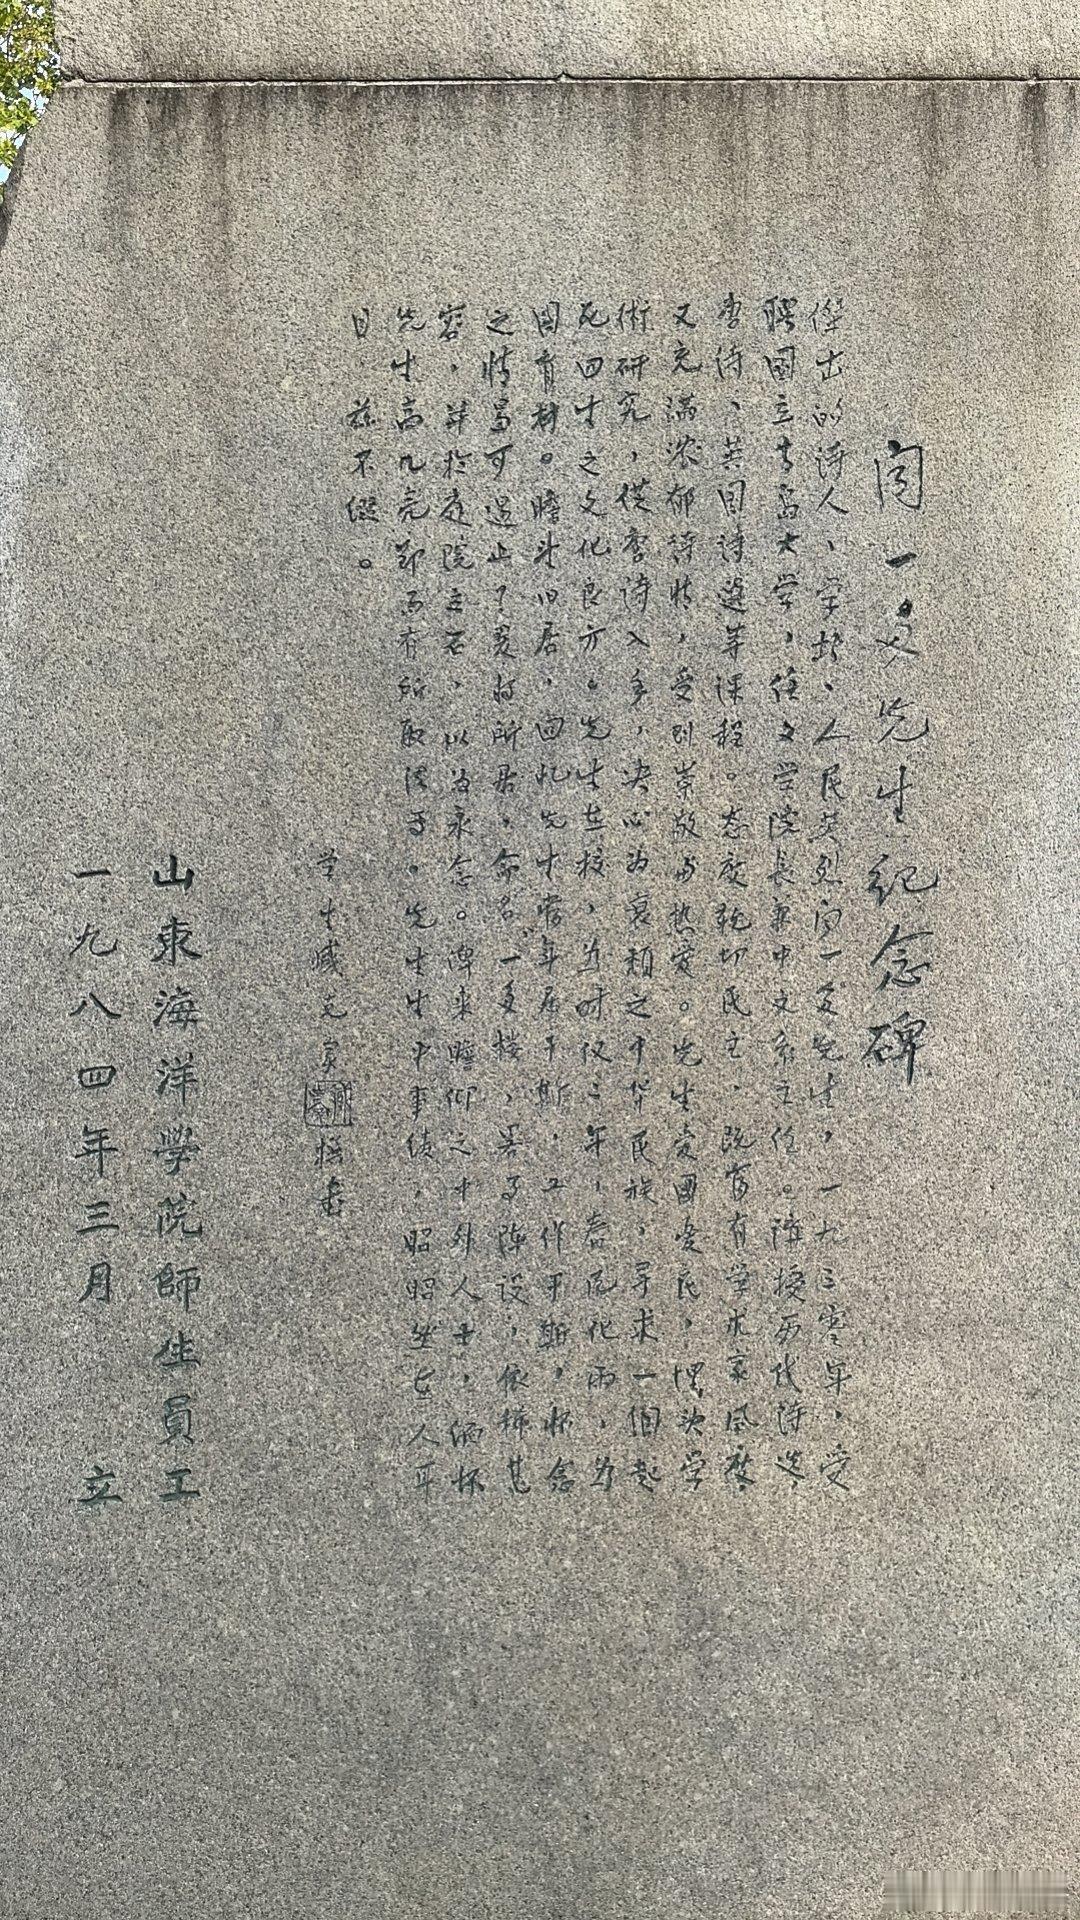 闻一多先生纪念碑
傑出的诗人、学者、人民英烈闻一多先生，一九三零年，受
聘國立青島大学，任文学院長兼中文系主任。講授历代诗选
唐诗、英国诗選等课程。态度親切民主，既富有学术家風度
又充满浓郁诗情，受到崇敬与热爱。先生爱國爱民，埋头学
術研究，從唐诗入手，决心为衰颓之中华民族，寻求一個起
死回生之文化良方。先生在校，为时仅二年，春風化雨，为
国育材。瞻望旧居，回忆先生當年居于斯，工作于斯，怀念
之情曷可遏止？爰将所居，命名"一多楼"，略予陳设，依稀其
容，并於庭院立石，以为永念。俾来瞻仰之中外人士，缅怀
先生高风亮节而有所取法于。先生生平事绩，昭昭然在人耳
目，兹不缀。
学生臧克家 撰書
山東海洋學院師生員工
一九八四年三月 立